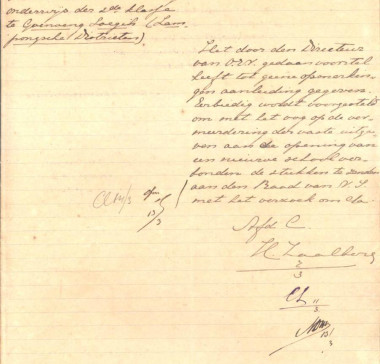 onderwijs der 2de klasse
te Goenoeng Soegih (Lam-
pongsche Districten)
Het door den Directeur
van O.E.N. gedaan voorstel
heeft tot geene opmerkin-
gen aanleiding gegeven.
Eerbiedig wordt voorgesteld
om met het oog op de ver-
meerdering der vaste uitga-
ven aan de opening van
een nieuwe school ver-
bonden de stukken te zenden
aan den Raad van N.I.
met het verzoek om
Afd C
H. Zaalberg
2
3